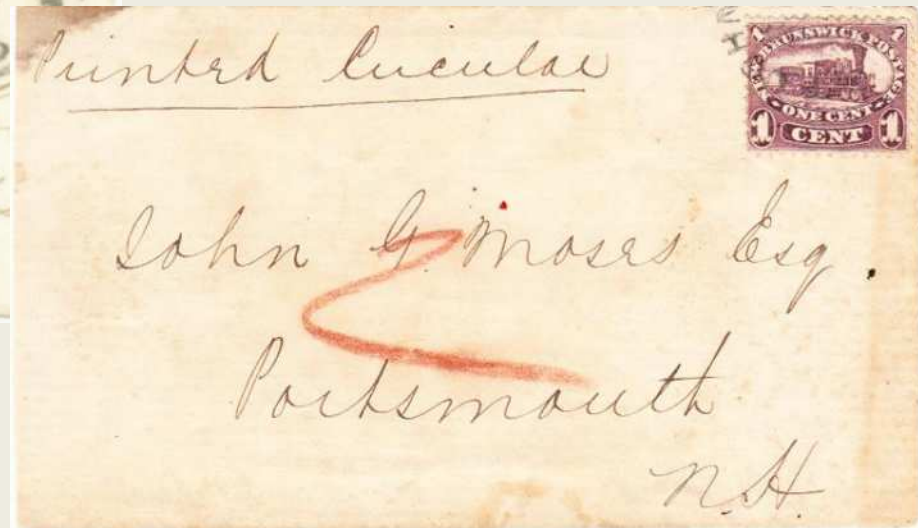 Printed Circular
1 NEW BRUNSWICK POSTAGE 1
ONE CENT
1 CENT 1
John G. Moses Esq.
2
Portsmouth
N.H.